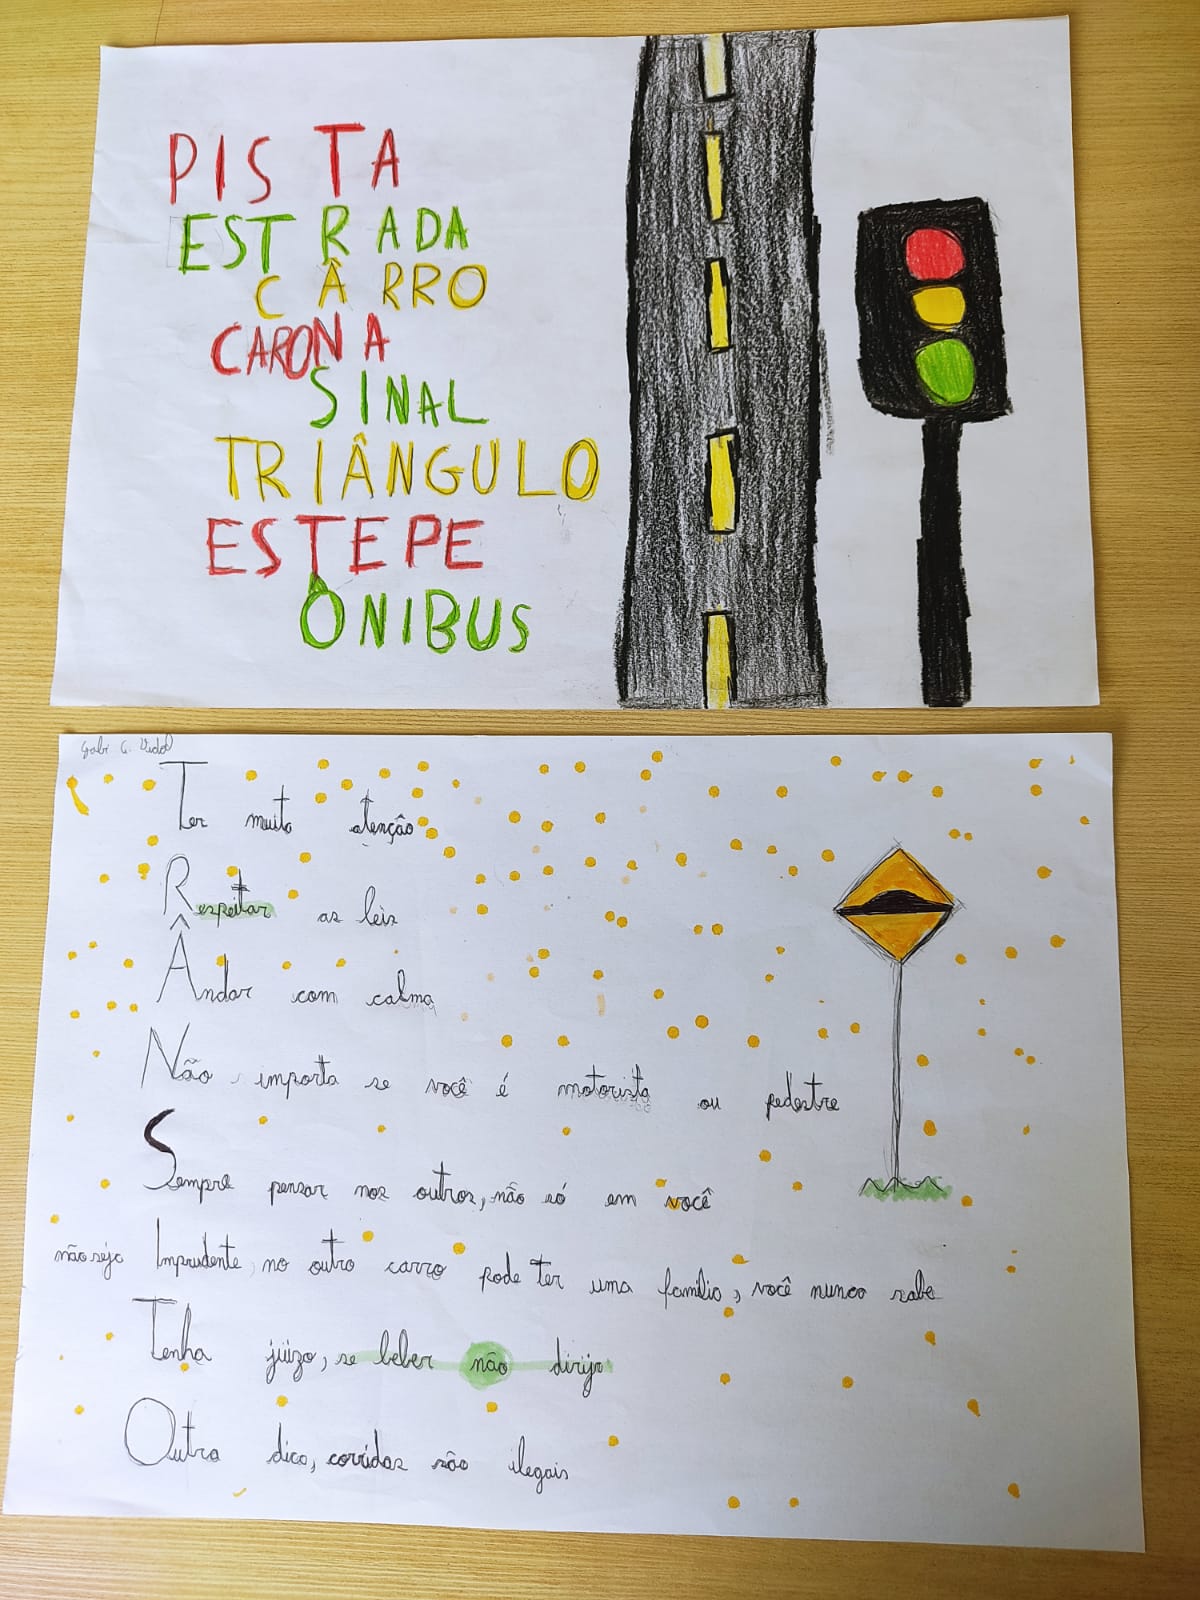 PISTA
ESTRADA
CÂRRO
CARONA
SINAL
TRIÂNGULO
ESTEPE
ÔNIBUS
Gabi G. Vidal
Ter muito atenção
Respeitar as leis
Ândar com calma
Não importa se você é motorista ou pedestre
Sempre pensar nos outros, não só em você
não seja Imprudente, no outro carro pode ter uma família, você nunca sabe
Tenha juízo, se beber não dirija
Outra dica, corridas são ilegais